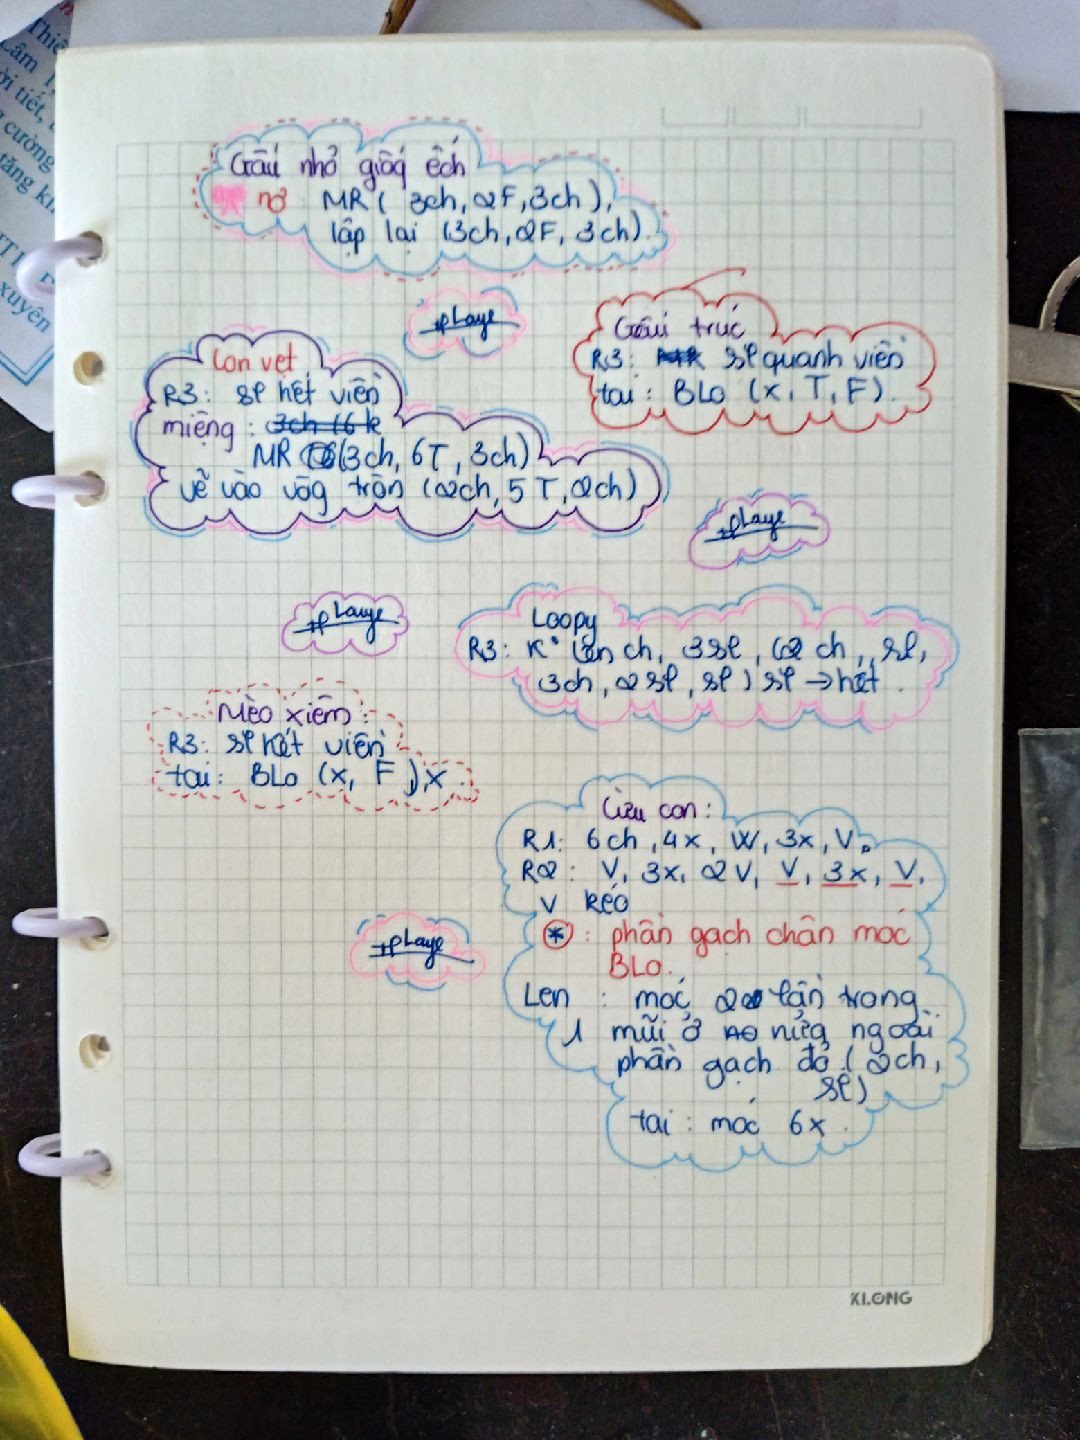 Thiê
Lâm T
ời tiết, t
g cường
tăng kh
xuyên
Gấu nhỏ giốg ếch
nơ: MR ( 3ch, 2F, 3ch ),
lập lại (3ch, 2F, 3ch).
pLaye
Gấu trúc
R3: sl quanh viền
tai: BLo (x, T, F).
Con vẹt
R3: sl hết viền
miệng: 3ch (6 k
MR (3ch, 6T, 3ch)
về vào vòg tròn (2ch, 5T, 2ch)
pLaye
pLaye
Loopy
R3: K° lên ch, 3sl, (2 ch, sl,
3ch, 2 sl, sl ) sl → hết.
Mèo xiêm:
R3: sl hết viền
tai: BLo (x, F ), x.
Cừu con:
R1: 6ch, 4x, W, 3x, V.
R2: V, 3x, 2V, V, 3x, V,
V kéo
pLaye
*: phần gạch chân móc
BLo.
Len: móc 2 lần trong
1 mũi ở nửa ngoài
phần gạch đỏ (2ch,
sl)
tai: móc 6x.
KLONG